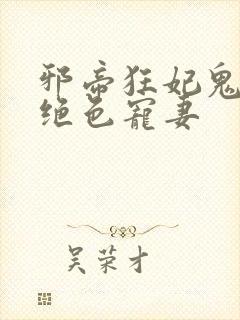 邪帝狂妃鬼
绝色宠妻
吴荣才